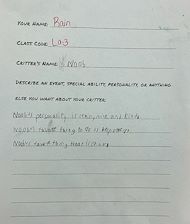 YOUR NAME: Rain
CLASS CODE: La3
CRITTER'S NAME: Noob
DESCRIBE AN EVENT, SPECIAL ABILITY, PERSONALITY, OR ANYTHING
ELSE YOU WANT ABOUT YOUR CRITTER:
Noob's personality is crazy, nice and kind.
Noob's favorite thing to do is
Noob's favorite thing